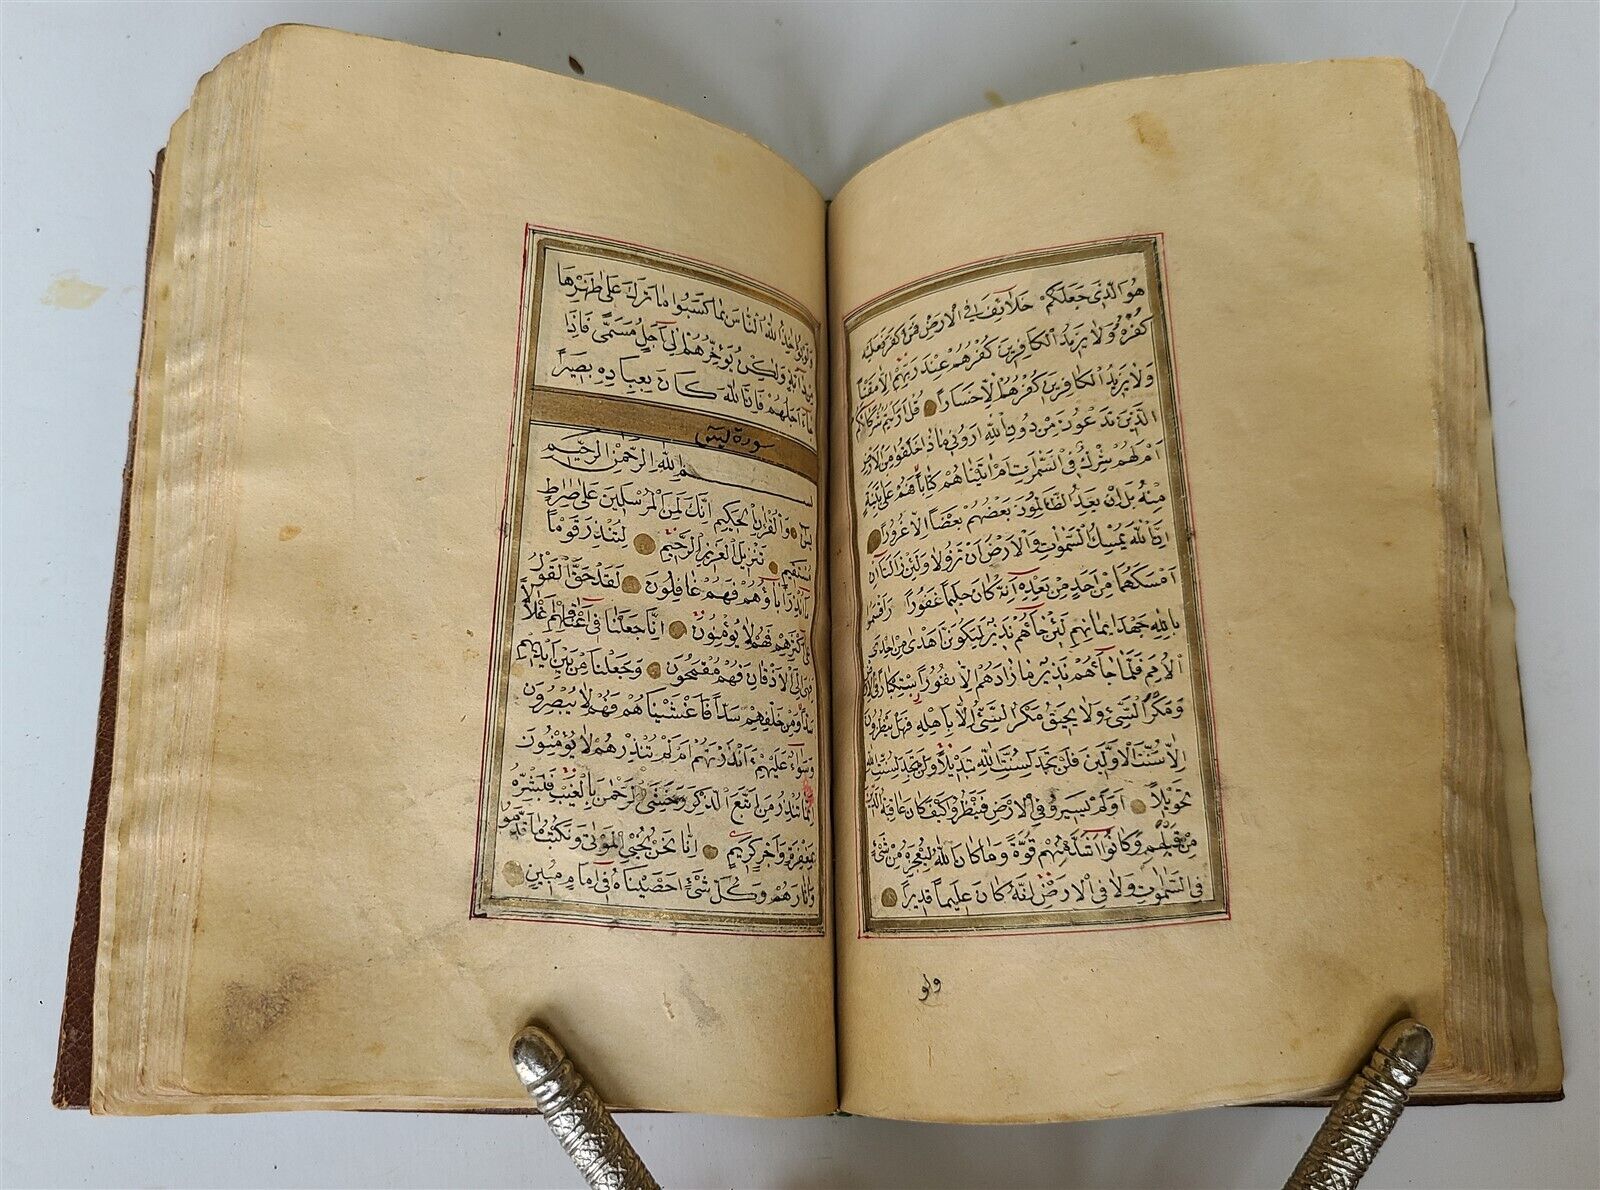 هُوَ الَّذِى جَعَلَكُمْ خَلَائِفَ فِى الْاَرْضِ فَمَنْ كَفَرَ فَعَلَيْهِ
كُفْرُهُ وَلَا يَزِيدُ الْكَافِرِينَ كُفْرُهُمْ عِنْدَ رَبِّهِمْ اِلَّا مَقْتًا
وَلَا يَزِيدُ الْكَافِرِينَ كُفْرُهُمْ اِلَّا خَسَارًا قُلْ اَرَاَيْتُمْ شُرَكَاءَكُمُ
الَّذِينَ تَدْعُونَ مِنْ دُونِ اللّٰهِ اَرُونِى مَاذَا خَلَقُوا مِنَ الْاَرْضِ
اَمْ لَهُمْ شِرْكٌ فِى السَّمٰوَاتِ اَمْ اٰتَيْنَاهُمْ كِتَابًا فَهُمْ عَلٰى بَيِّنَةٍ
مِنْهُ بَلْ اِنْ يَعِدُ الظَّالِمُونَ بَعْضُهُمْ بَعْضًا اِلَّا غُرُورًا
اِنَّ اللّٰهَ يُمْسِكُ السَّمٰوَاتِ وَالْاَرْضَ اَنْ تَزُولَا وَلَئِنْ زَالَتَا اِنْ
اَمْسَكَهُمَا مِنْ اَحَدٍ مِنْ بَعْدِهِ اِنَّهُ كَانَ حَلِيمًا غَفُورًا وَاَقْسَمُوا
بِاللّٰهِ جَهْدَ اَيْمَانِهِمْ لَئِنْ جَاءَهُمْ نَذِيرٌ لَيَكُونُنَّ اَهْدٰى مِنْ اِحْدَى
الْاُمَمِ فَلَمَّا جَاءَهُمْ نَذِيرٌ مَا زَادَهُمْ اِلَّا نُفُورًا اسْتِكْبَارًا فِى الْاَرْضِ
وَمَكْرَ السَّيِّئِ وَلَا يَحِيقُ مَكْرُ السَّيِّئُ اِلَّا بِاَهْلِهِ فَهَلْ يَنْظُرُونَ
اِلَّا سُنَّتَ الْاَوَّلِينَ فَلَنْ تَجِدَ لِسُنَّتِ اللّٰهِ تَبْدِيلًا وَلَنْ تَجِدَ لِسُنَّتِ اللّٰهِ
تَحْوِيلًا اَوَلَمْ يَسِيرُوا فِى الْاَرْضِ فَيَنْظُرُوا كَيْفَ كَانَ عَاقِبَةُ الَّذِينَ
مِنْ قَبْلِهِمْ وَكَانُوا اَشَدَّ مِنْهُمْ قُوَّةً وَمَا كَانَ اللّٰهُ لِيُعْجِزَهُ مِنْ شَىْءٍ
فِى السَّمٰوَاتِ وَلَا فِى الْاَرْضِ اِنَّهُ كَانَ عَلِيمًا قَدِيرًا
ولو
وَلَوْ يُؤَاخِذُ اللّٰهُ النَّاسَ بِمَا كَسَبُوا مَا تَرَكَ عَلٰى ظَهْرِهَا
مِنْ دَابَّةٍ وَلٰكِنْ يُؤَخِّرُهُمْ اِلٰى اَجَلٍ مُسَمًّى فَاِذَا
جَاءَ اَجَلُهُمْ فَاِنَّ اللّٰهَ كَانَ بِعِبَادِهِ بَصِيرًا
سورة يس
بسم اللّٰه الرَّحْمٰنِ الرَّحِيمِ
يٰسٓ وَالْقُرْاٰنِ الْحَكِيمِ اِنَّكَ لَمِنَ الْمُرْسَلِينَ عَلٰى صِرَاطٍ
مُسْتَقِيمٍ تَنْزِيلَ الْعَزِيزِ الرَّحِيمِ لِتُنْذِرَ قَوْمًا
مَا اُنْذِرَ اٰبَاؤُهُمْ فَهُمْ غَافِلُونَ لَقَدْ حَقَّ الْقَوْلُ
عَلٰى اَكْثَرِهِمْ فَهُمْ لَا يُؤْمِنُونَ اِنَّا جَعَلْنَا فِى اَعْنَاقِهِمْ اَغْلَالًا
فَهِىَ اِلَى الْاَذْقَانِ فَهُمْ مُقْمَحُونَ وَجَعَلْنَا مِنْ بَيْنِ اَيْدِيهِمْ
سَدًّا وَمِنْ خَلْفِهِمْ سَدًّا فَاَغْشَيْنَاهُمْ فَهُمْ لَا يُبْصِرُونَ
وَسَوَاءٌ عَلَيْهِمْ ءَاَنْذَرْتَهُمْ اَمْ لَمْ تُنْذِرْهُمْ لَا يُؤْمِنُونَ
اِنَّمَا تُنْذِرُ مَنِ اتَّبَعَ الذِّكْرَ وَخَشِىَ الرَّحْمٰنَ بِالْغَيْبِ فَبَشِّرْهُ
بِمَغْفِرَةٍ وَاَجْرٍ كَرِيمٍ اِنَّا نَحْنُ نُحْيِى الْمَوْتٰى وَنَكْتُبُ مَا قَدَّمُوا
وَاٰثَارَهُمْ وَكُلَّ شَىْءٍ اَحْصَيْنَاهُ فِى اِمَامٍ مُبِينٍ